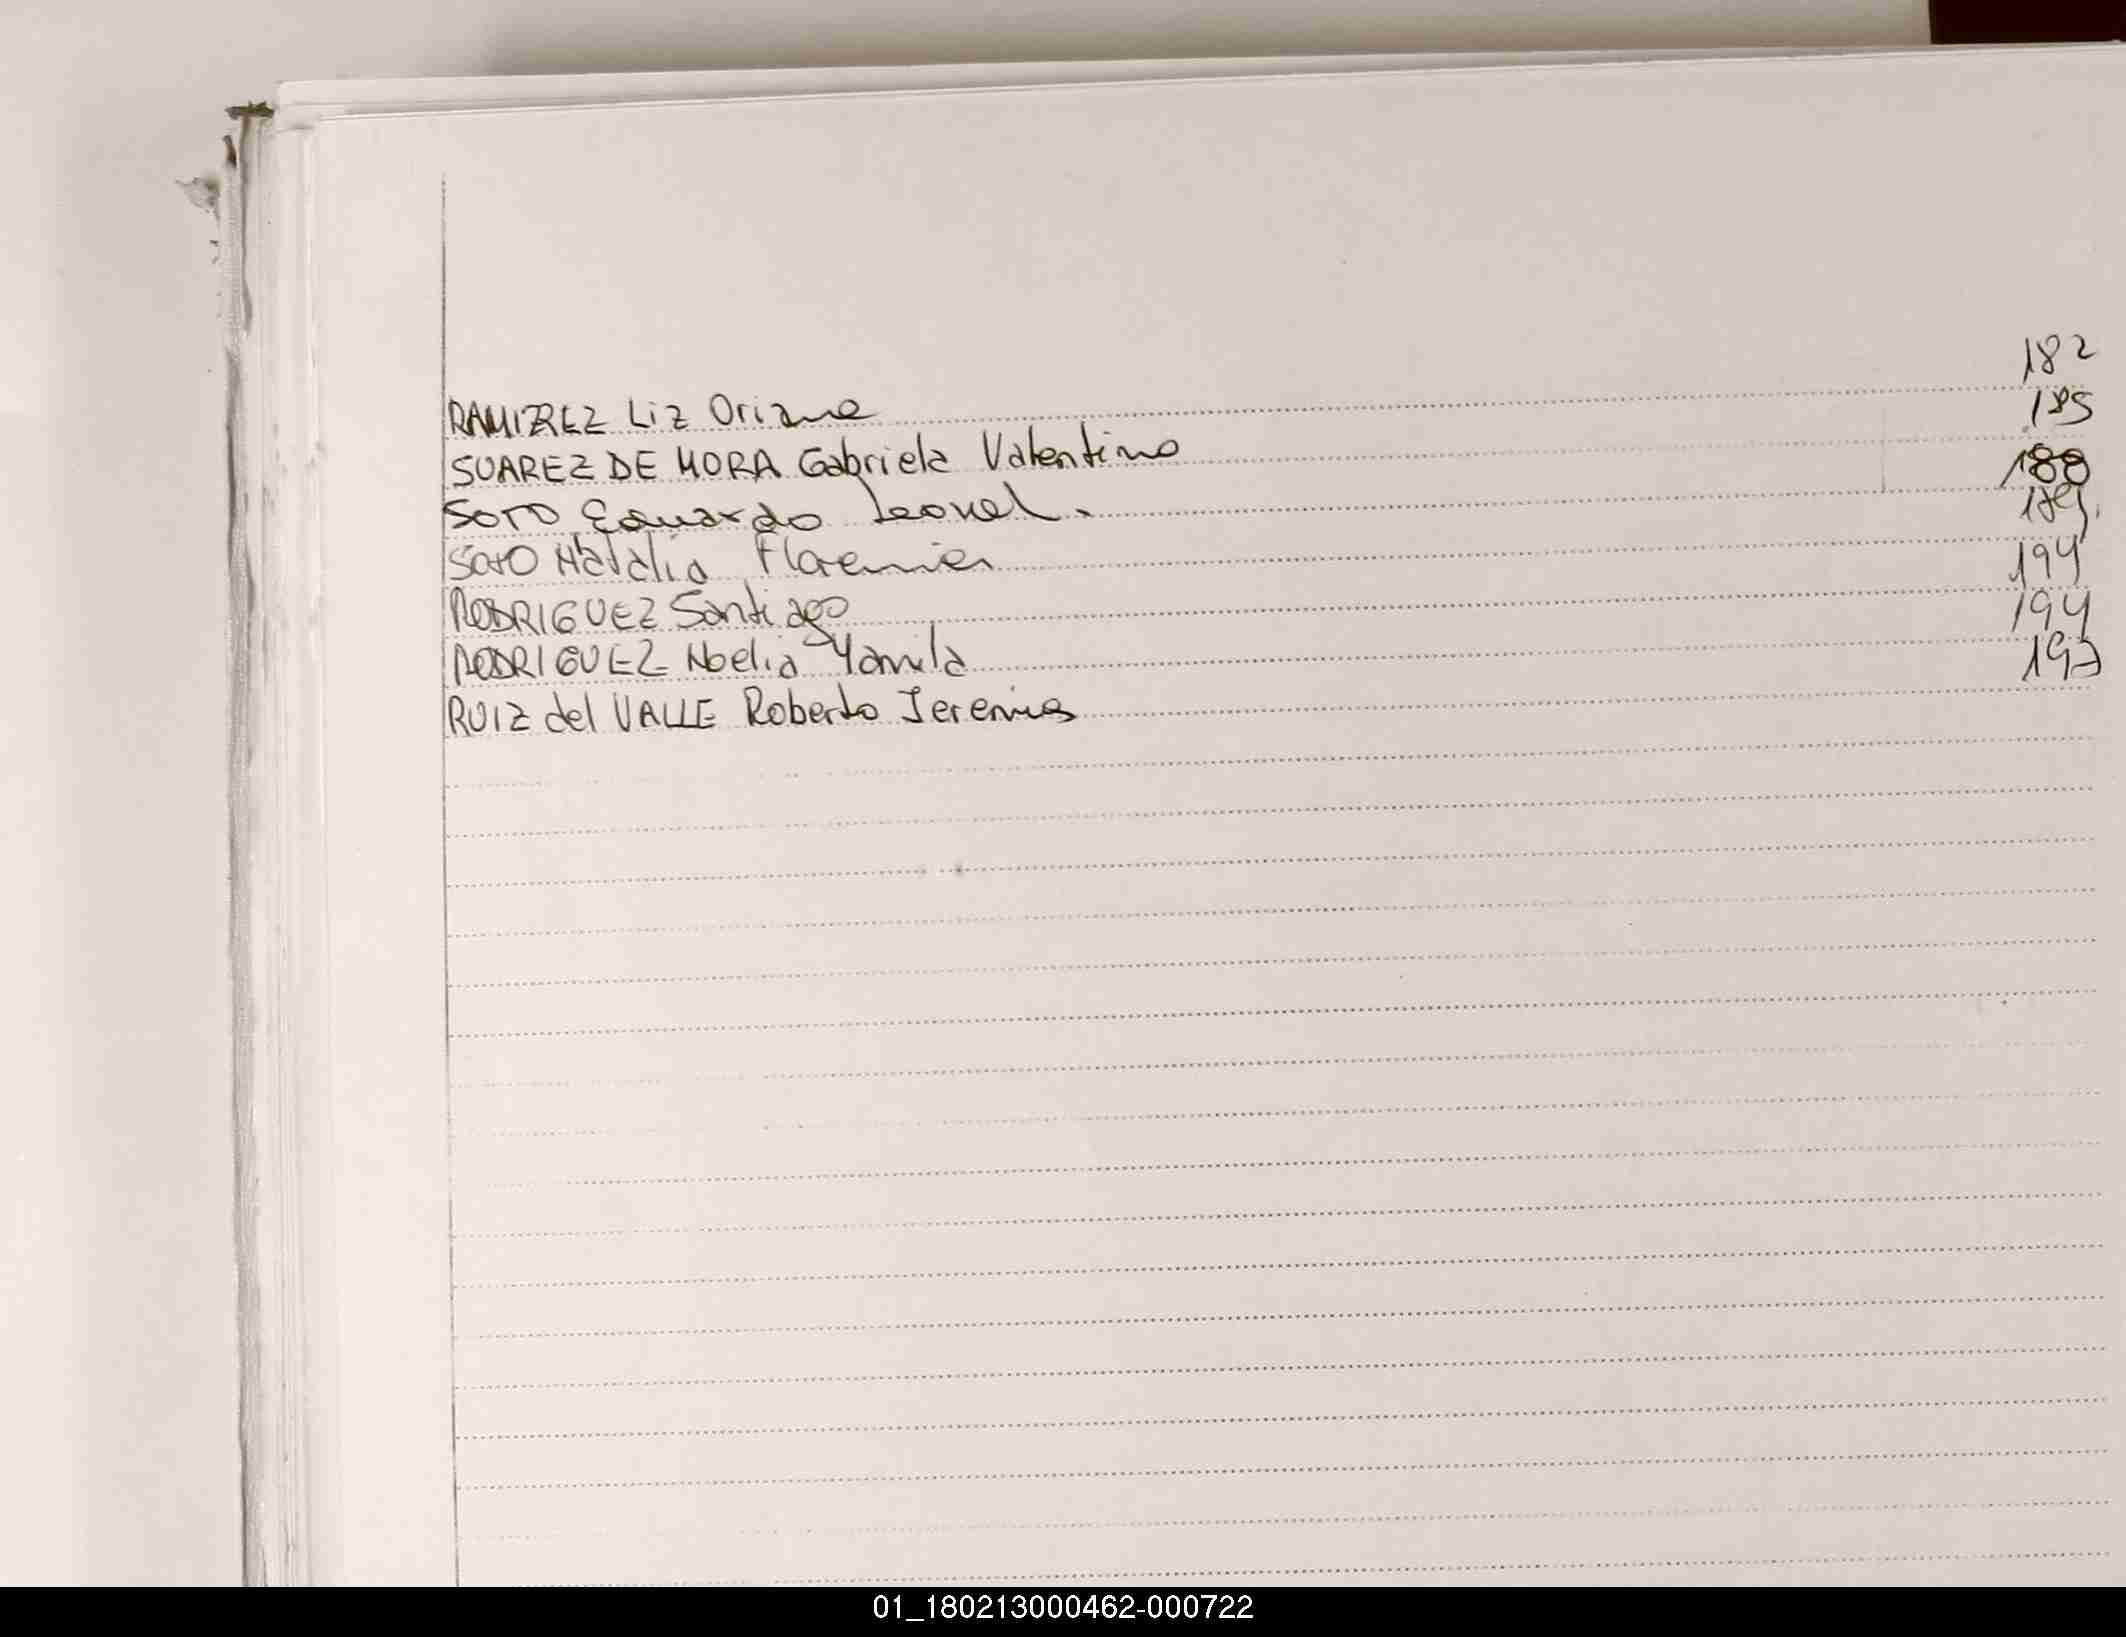 RAMIREZ Liz Oriana 182
SUAREZ DE MORA Gabriela Valentina 185
SOTO Eduardo Leonel. 188
SOTO Natalia Florencia 189
RODRIGUEZ Santiago 194
RODRIGUEZ Noelia Yamila 194
RUIZ del VALLE Roberto Jeremias 197
01_180213000462-000722